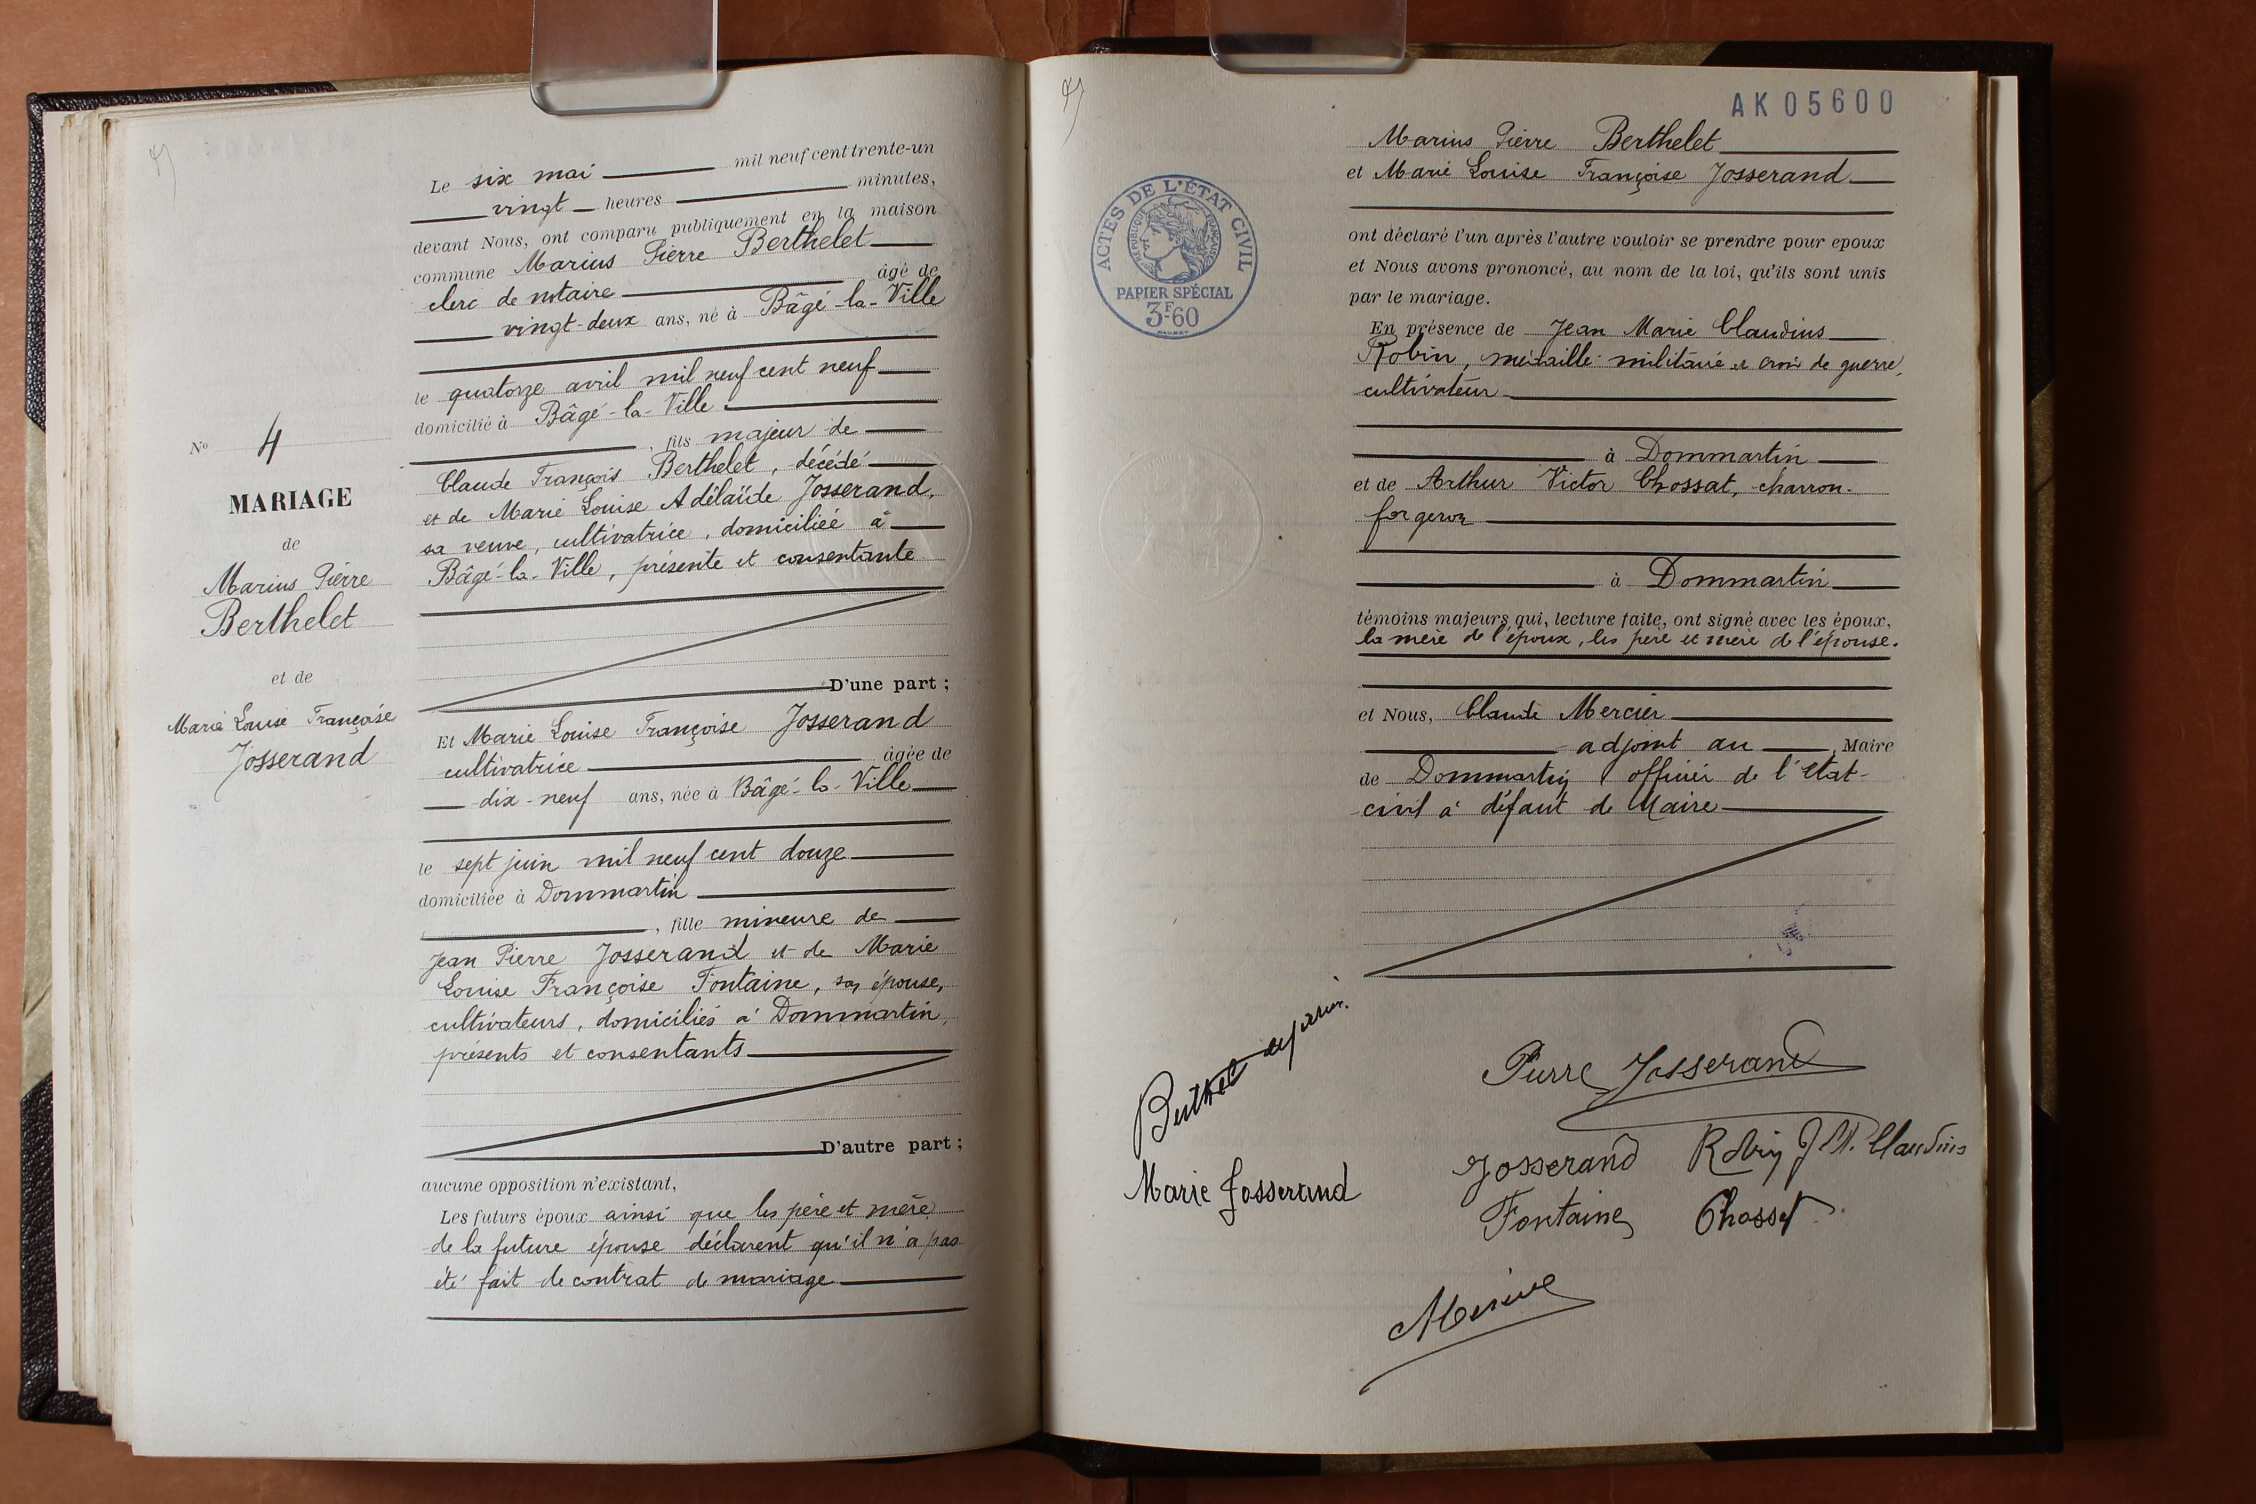 Le six mai mil neuf cent trente-un
vingt heures minutes,
devant Nous, ont comparu publiquement en la maison
commune Marius Pierre Berthelet
clerc de notaire âgé de
vingt-deux ans, né à Bâgé-la-Ville
le quatorze avril mil neuf cent neuf
domicilié à Bâgé-la-Ville
, fils majeur de
Claude François Berthelet, décédé
et de Marie Louise Adélaïde Josserand,
sa veuve, cultivatrice, domiciliée à
Bâgé-la-Ville, présente et consentante
D'une part ;
Et Marie Louise Françoise Josserand
cultivatrice âgée de
dix-neuf ans, née à Bâgé-la-Ville
le sept juin mil neuf cent douze
domiciliée à Dommartin
, fille mineure de
Jean Pierre Josserand et de Marie
Louise Françoise Fontaine, son épouse,
cultivateurs, domiciliés à Dommartin,
présents et consentants
D'autre part ;
aucune opposition n'existant,
Les futurs époux ainsi que les père et mère
de la future épouse déclarent qu'il n'a pas
été fait de contrat de mariage
No 4
MARIAGE
de
Marius Pierre
Berthelet
et de
Marie Louise Françoise
Josserand
AK 05600
ACTES DE L'ÉTAT CIVIL
RÉPUBLIQUE FRANÇAISE
PAPIER SPÉCIAL
3F-60
Marius Pierre Berthelet
et Marie Louise Françoise Josserand
ont déclaré l'un après l'autre vouloir se prendre pour epoux
et Nous avons prononcé, au nom de la loi, qu'ils sont unis
par le mariage.
En présence de Jean Marie Claudius
Robin, médaille militaire et croix de guerre,
cultivateur
à Dommartin
et de Arthur Victor Chossat, charron-
forgeron
à Dommartin
témoins majeurs qui, lecture faite, ont signé avec les époux,
la mère de l'époux, les père et mère de l'épouse.
et Nous, Claude Mercier
adjoint au Maire
de Dommartin officier de l'Etat-
civil à défaut de Maire
Berthelet
Pierre Josserand
Josserand Robin J. M. Claudius
Marie Josserand
Fontaine Chossat
Mercier